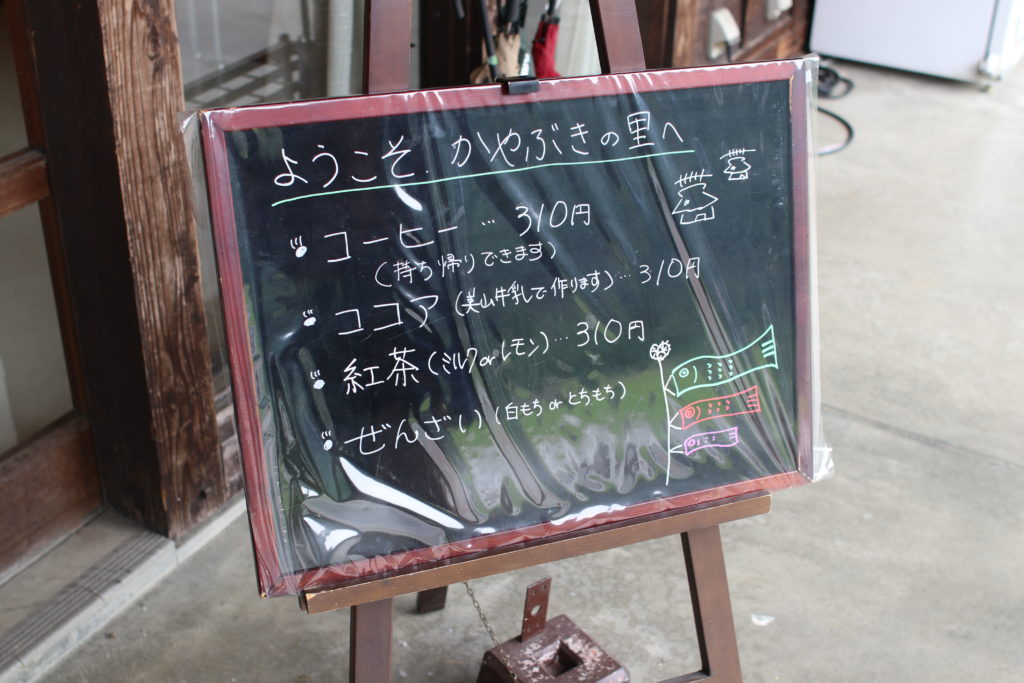 ようこそ かやぶきの里へ
コーヒー … 310円
(持ち帰りできます)
ココア (美山牛乳で作ります) … 310円
紅茶 (ミルク or レモン) … 310円
ぜんざい (白もち or とちもち)